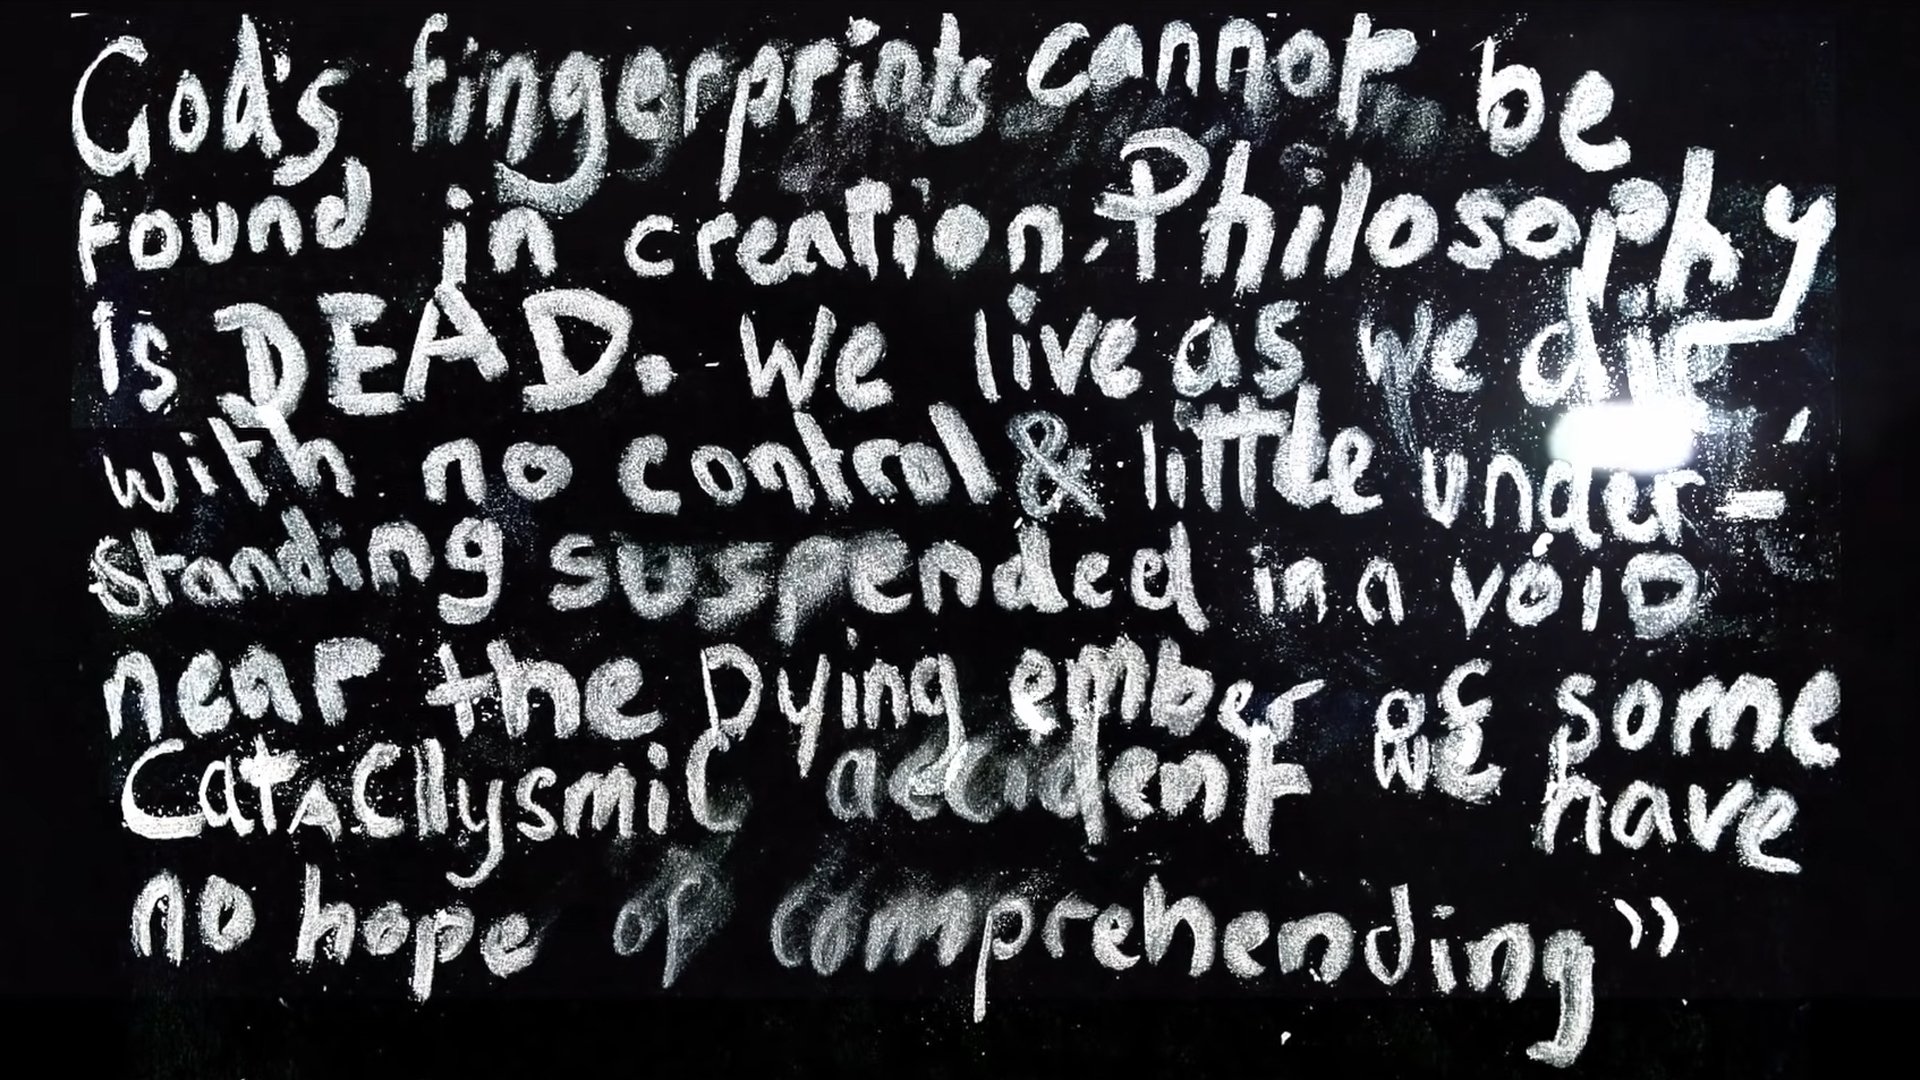 God's fingerprints cannot be
found in creation. Philosophy
is DEAD. We live as we die
with no control & little under-
standing suspended in a void
near the Dying ember of some
Catacllysmic accident we have
no hope of comprehending"